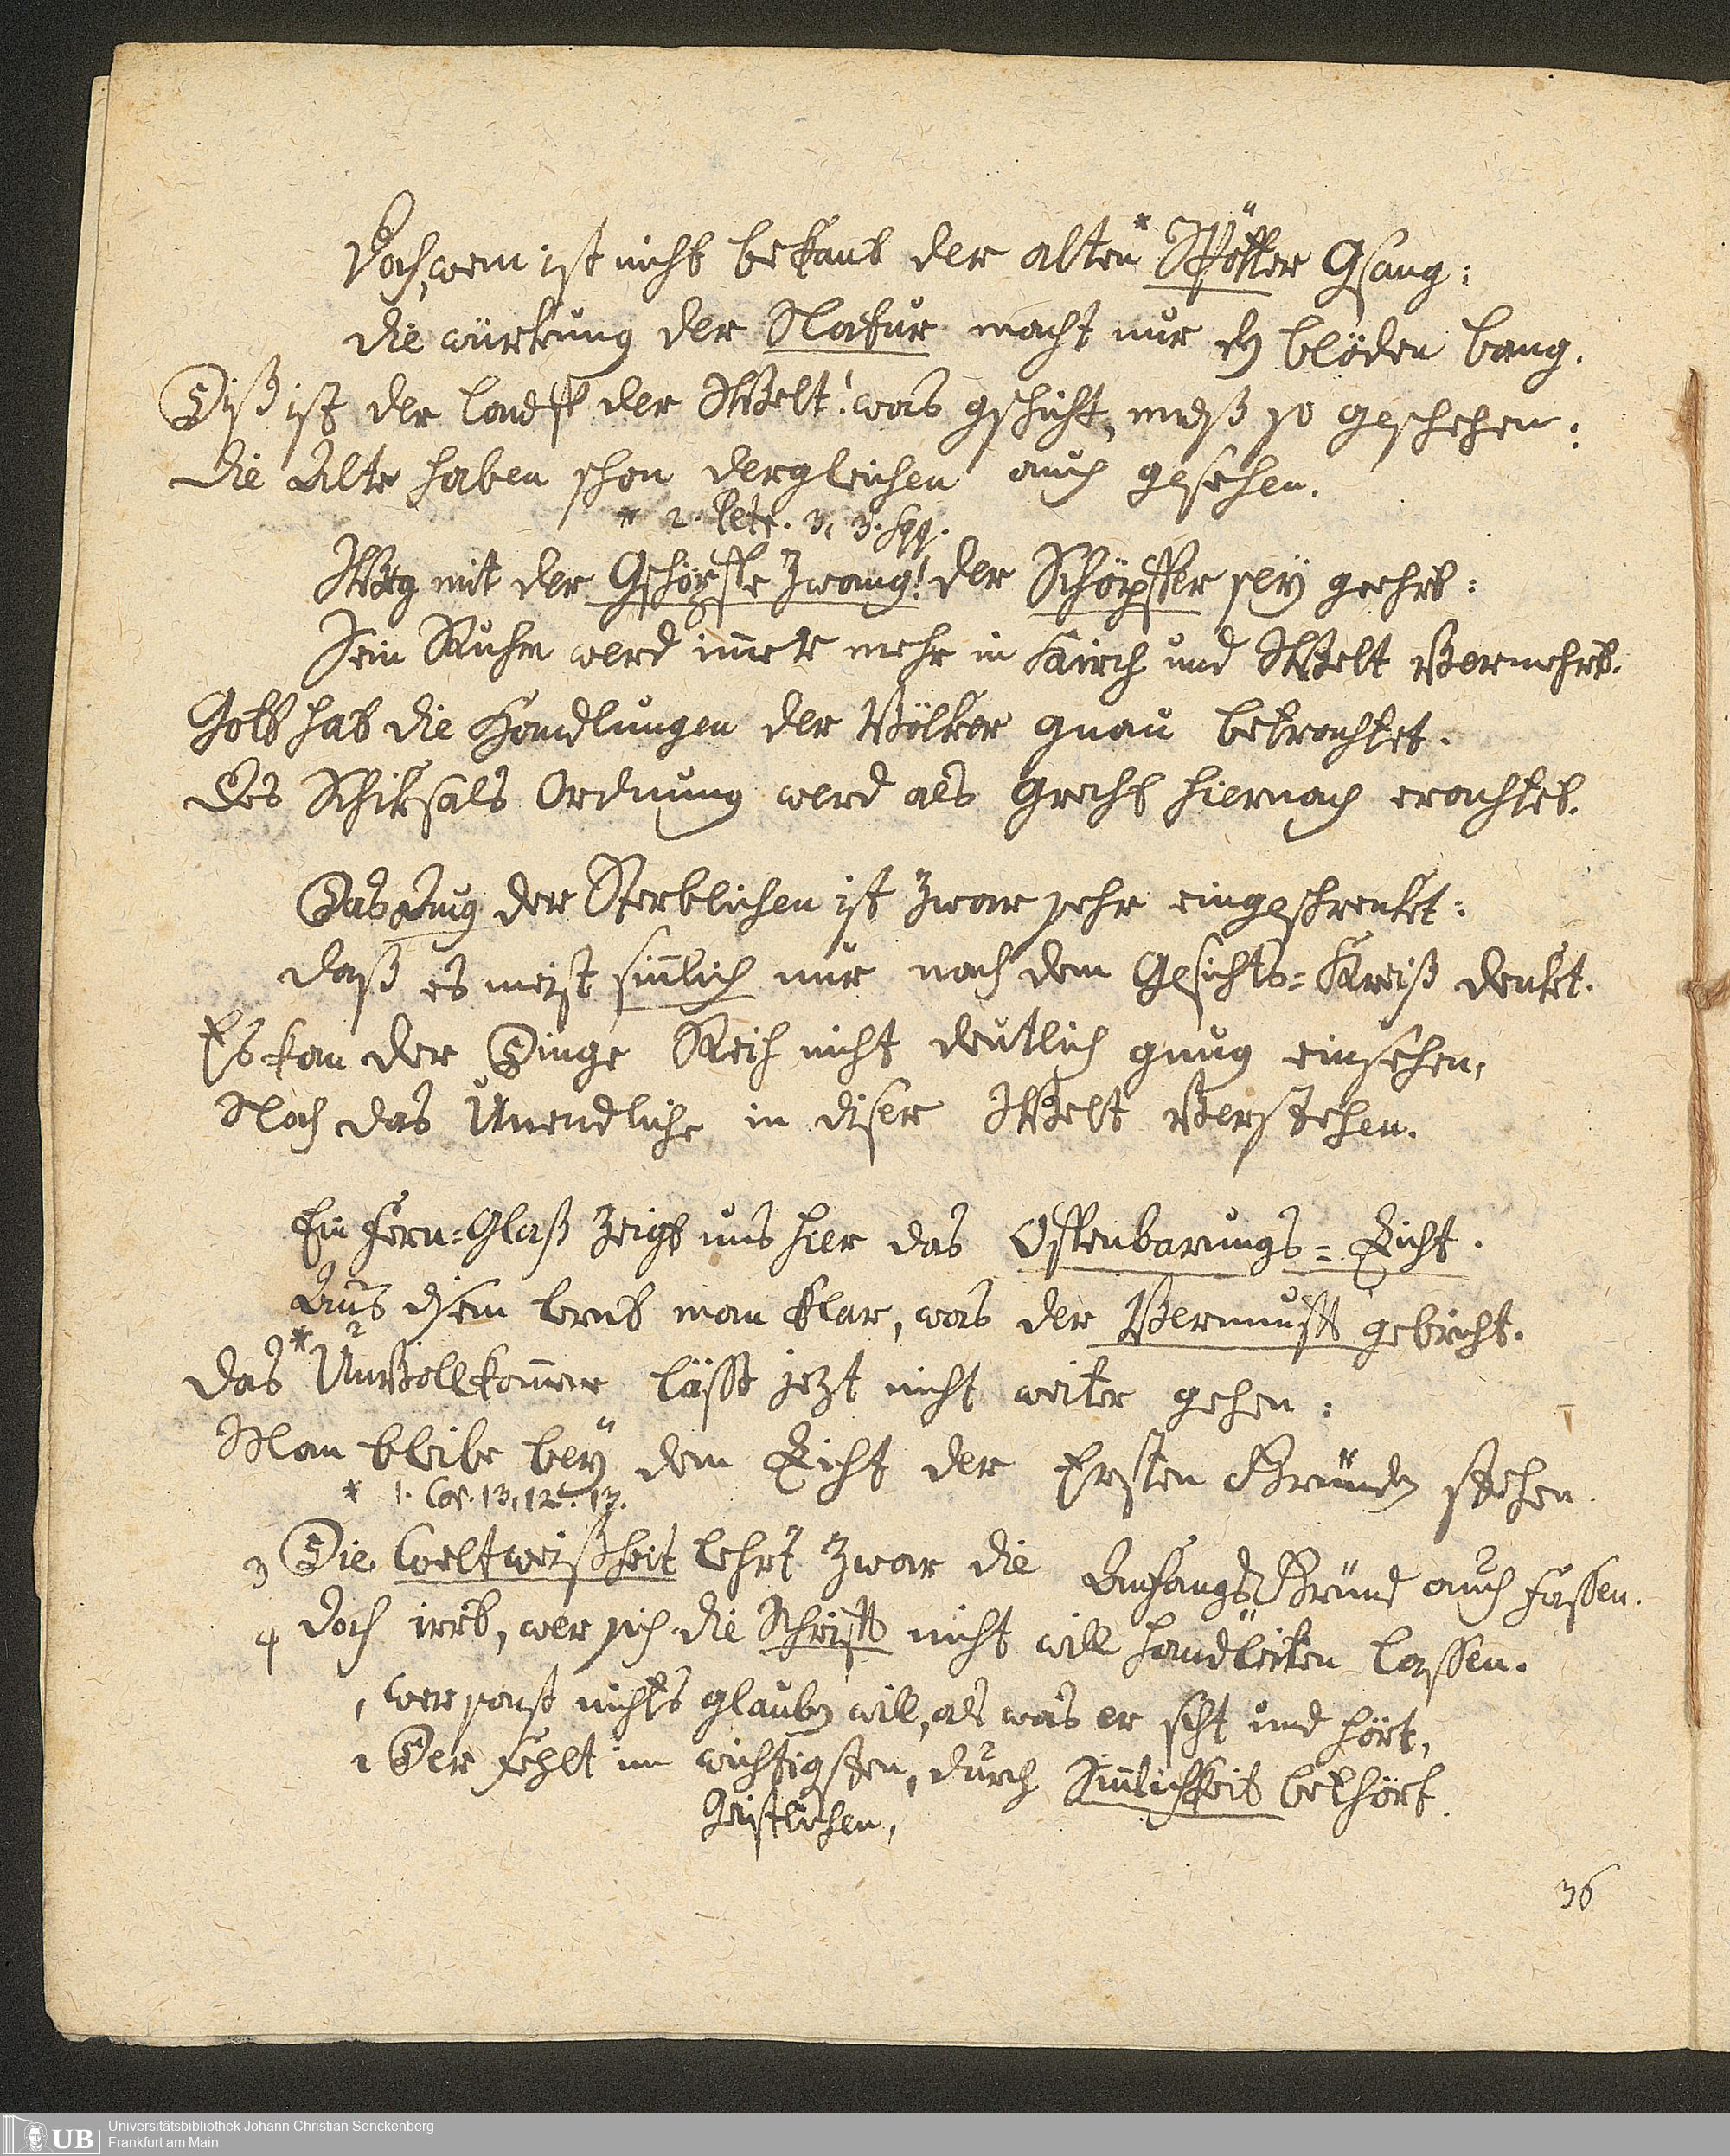 Doch, wem ist nicht bekant der alten * Spötter Gsang:
die würkung der Natur macht nur den blöden bang.
Diß ist der lauff der Welt! was gschicht, muß so geschehen:
die Alte haben schon dergleichen auch gesehen.
* 2. Petr. 3, 3. sqq.
Weg mit der Gschöpffe Zwang! der Schöpffer sey geehrt:
Sein Ruhm werd immer mehr in Kirch und Welt Vermehrt.
Gott hat die Handlungen der Völker gnau betrachtet.
Des Schiksals Ordnung werd als Grecht hiernach erachtet.
Das Aug der Sterblichen ist zwar sehr eingeschrenket:
daß es meist sinnlich nur nach dem Gesichts=Kreiß denket.
Es kan der Dinge Reih nicht deutlich gnug einsehen,
Noch das Unendliche in diser Welt Verstehen.
Ein Fern=Glaß zeigt uns hier das Offenbarungs=Licht.
Aus disem lernt man klar, was der Vernunfft gebricht.
das * UnVollkommne lässt jezt nicht weiter gehen:
Man bleibe bey dem Licht der Ersten Gründen stehen.
* 1. Cor. 13, 12. 13.
3 Die Weltweißheit lehrt zwar die Anfangs Gründ auch fassen.
4 doch irrt, wer sich die Schrifft nicht will handleiten lassen.
1 wer sonst nichts glauben will, als was er siht und hört,
2 Der fehlt im wichtigsten, durch Sinnlichkeit bethört.
Geistlichen,
36
UB Universitätsbibliothek Johann Christian Senckenberg
Frankfurt am Main